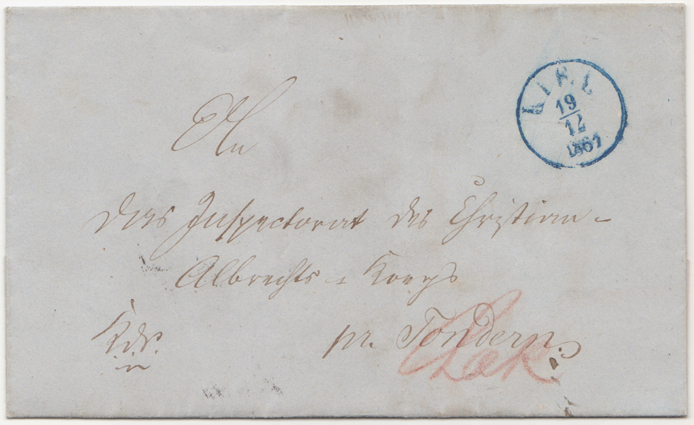 KIEL
19
12
1867
An
das Inspectorat des Christian-
Albrechts-Koogs
K.d.S.
pr. Tondern